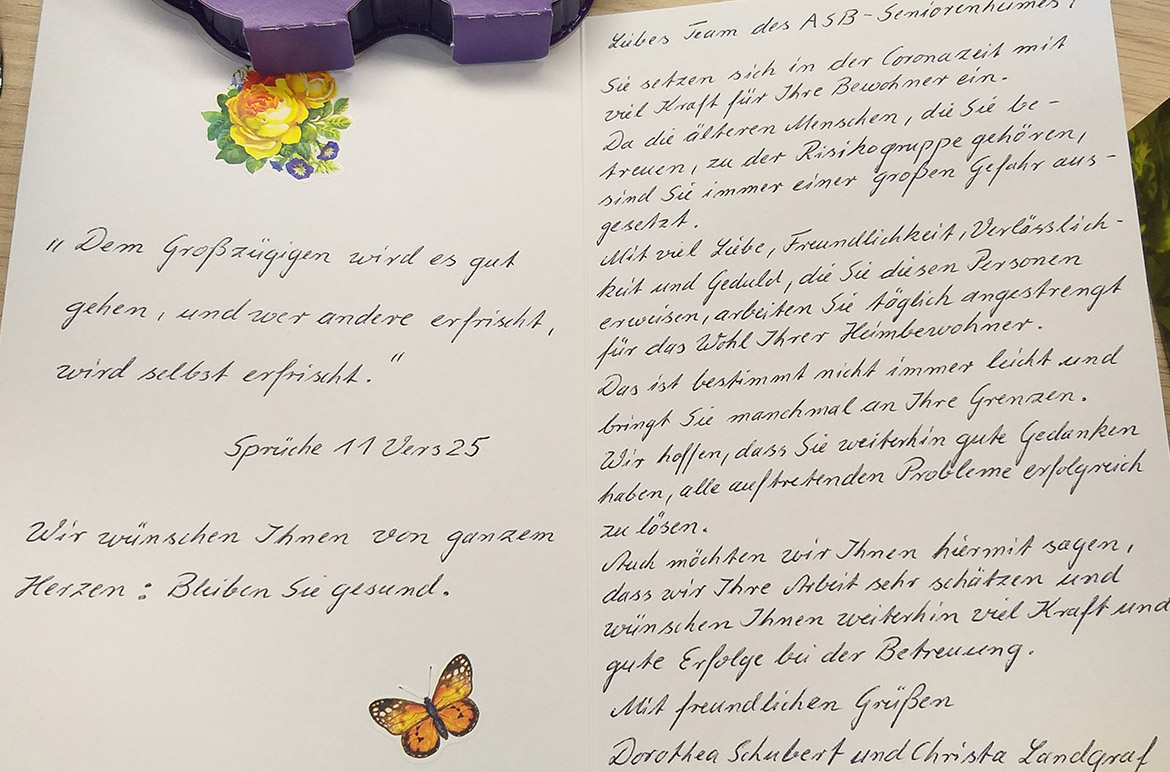 „Dem Großzügigen wird es gut
gehen, und wer andere erfrischt,
wird selbst erfrischt."
Sprüche 11 Vers 25
Wir wünschen Ihnen von ganzem
Herzen: Bleiben Sie gesund.
Liebes Team des ASB-Seniorenheimes,
Sie setzen sich in der Coronazeit mit
viel Kraft für Ihre Bewohner ein.
Da die älteren Menschen, die Sie be-
treuen, zu der Risikogruppe gehören,
sind Sie immer einer großen Gefahr aus-
gesetzt.
Mit viel Liebe, Freundlichkeit, Verlässlich-
keit und Geduld, die Sie diesen Personen
erweisen, arbeiten Sie täglich angestrengt
für das Wohl Ihrer Heimbewohner.
Das ist bestimmt nicht immer leicht und
bringt Sie manchmal an Ihre Grenzen.
Wir hoffen, dass Sie weiterhin gute Gedanken
haben, alle auftretenden Probleme erfolgreich
zu lösen.
Auch möchten wir Ihnen hiermit sagen,
dass wir Ihre Arbeit sehr schätzen und
wünschen Ihnen weiterhin viel Kraft und
gute Erfolge bei der Betreuung.
Mit freundlichen Grüßen
Dorothea Schubert und Christa Landgraf